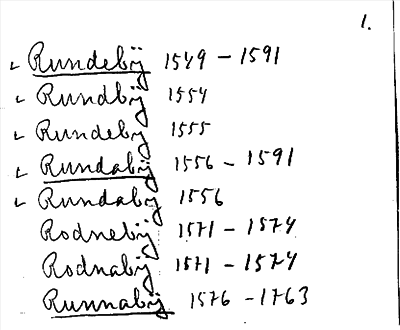 1.
Rundebÿ 1549 – 1591
Rundbÿ 1554
Rundebÿ 1555
Rundabÿ 1556 – 1591
Rundabÿ 1556
Rodnebÿ 1571 – 1574
Rodnabÿ 1571 – 1574
Runnabÿ 1576 – 1763